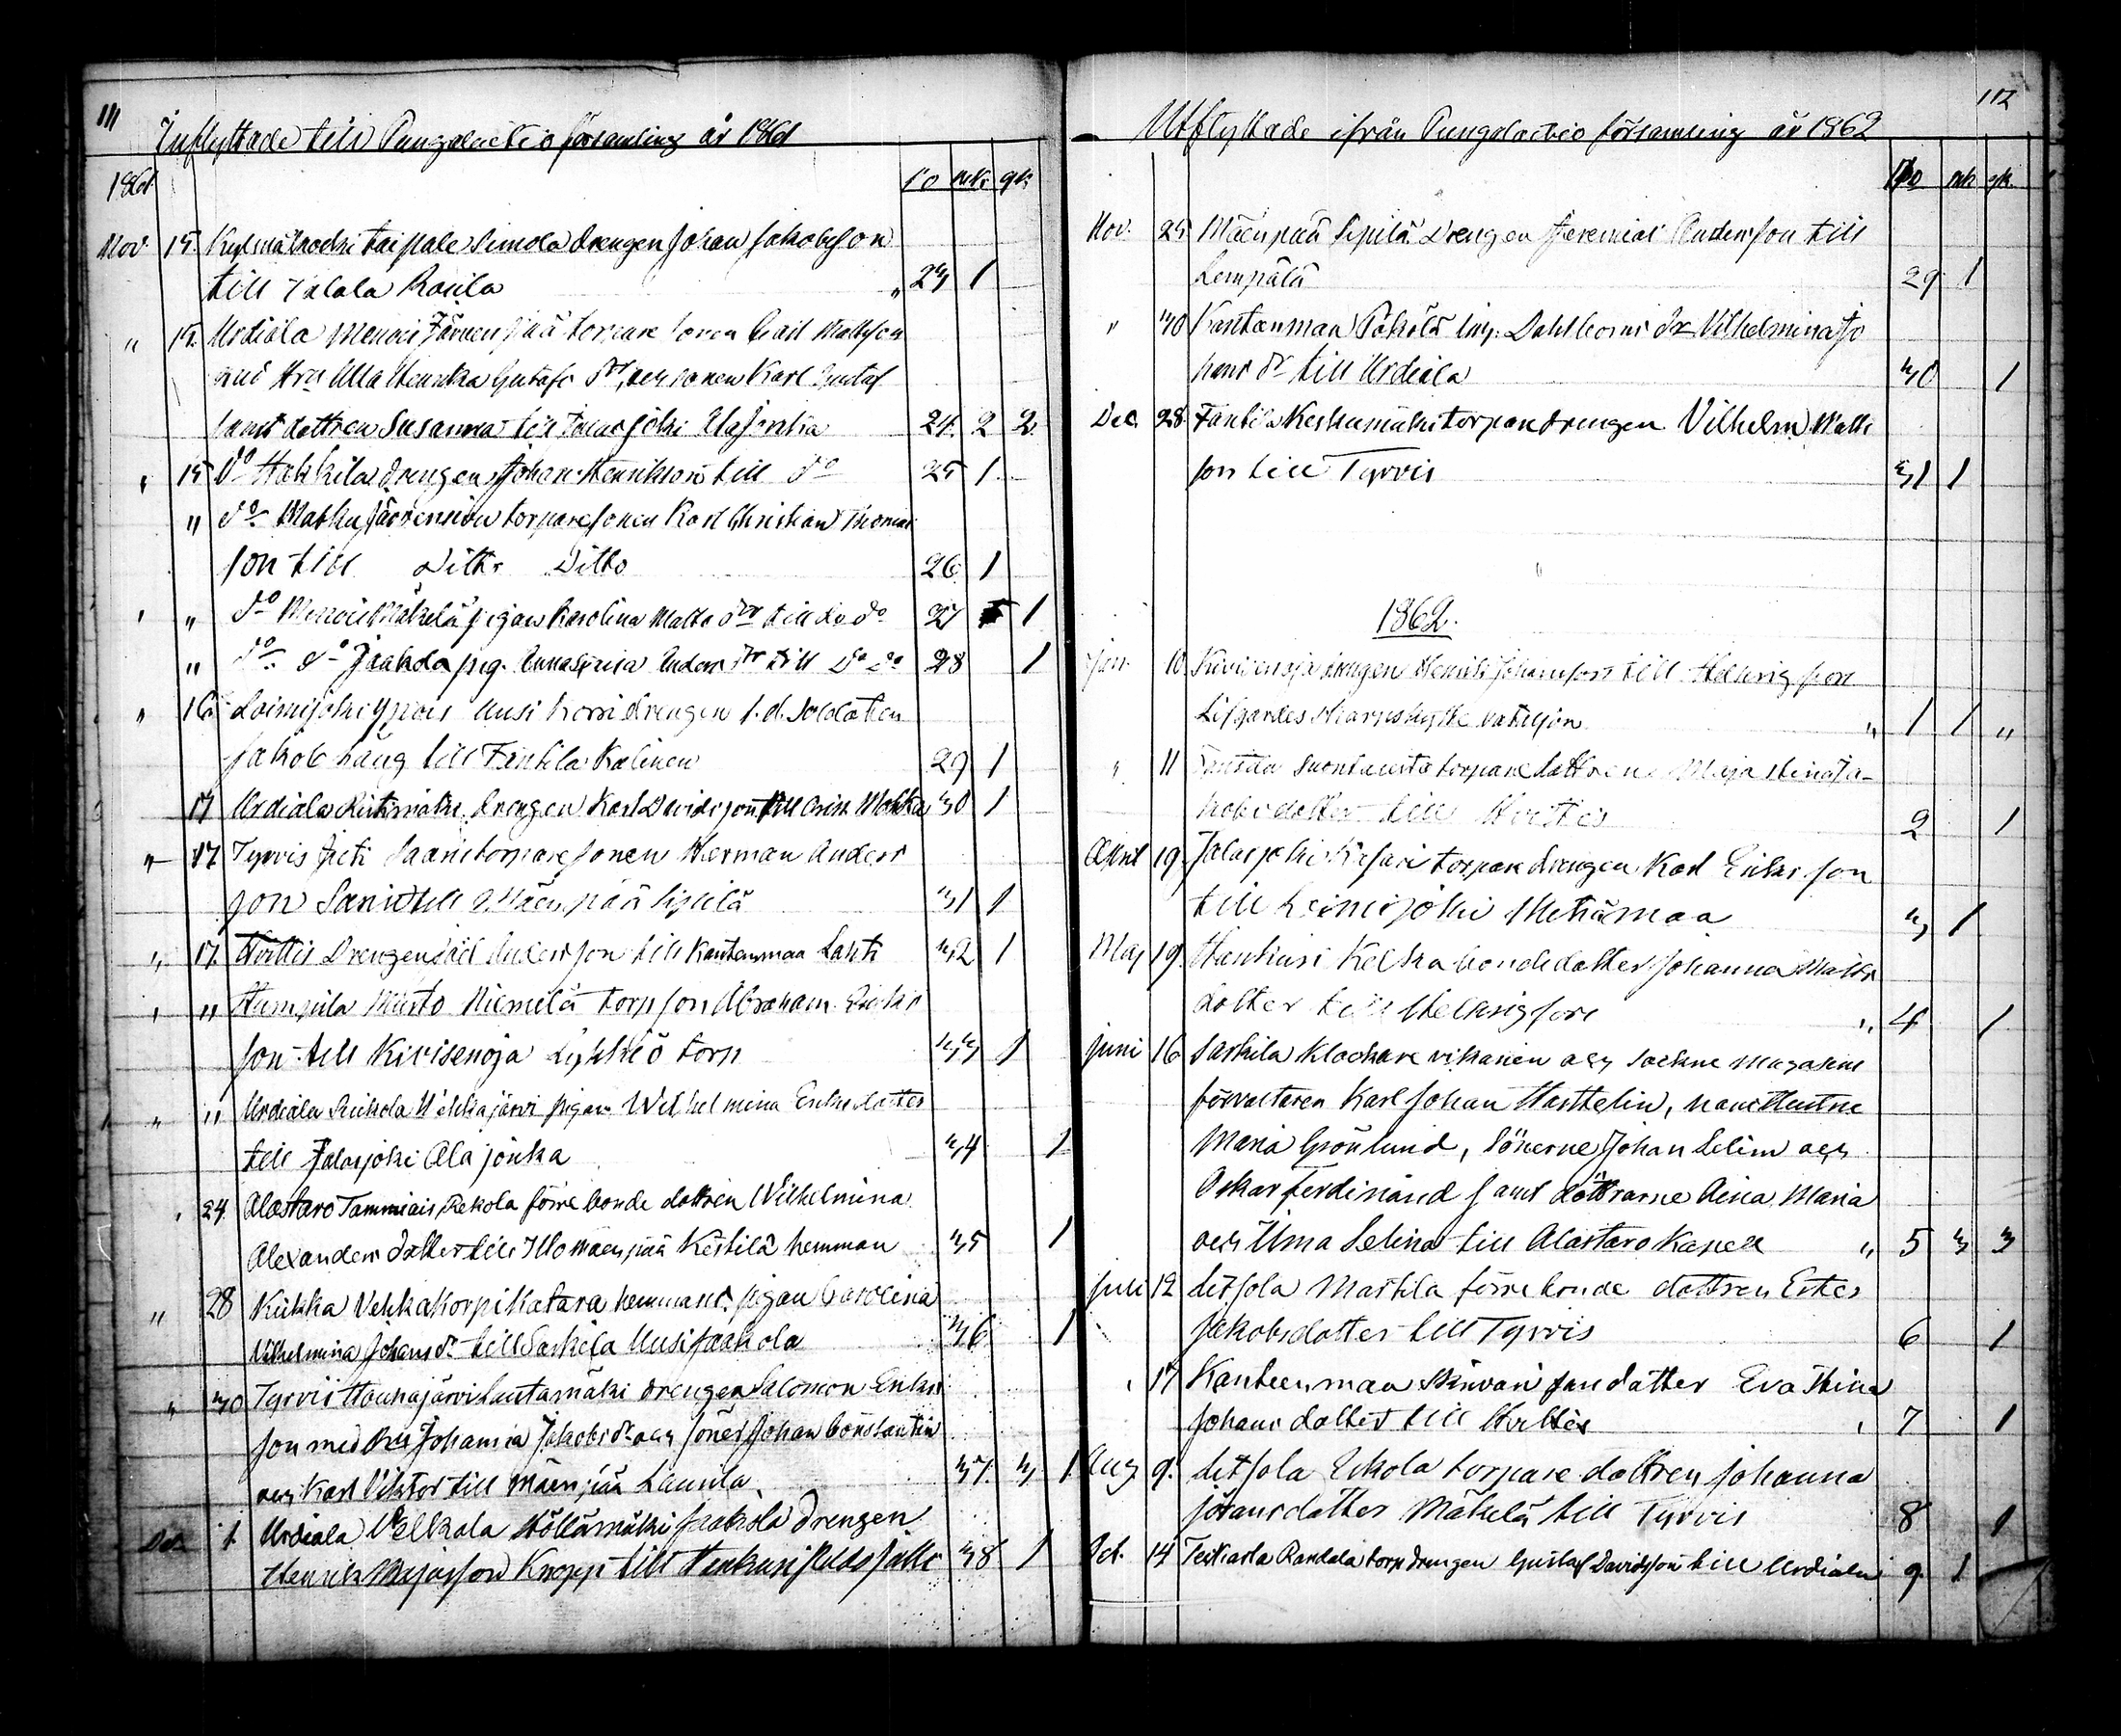 111
Inflyttade till Pungalaitio församling år 1861
1861 No mk qk
Nov. 15. Kylmäkoski Taipale Simola drengen Johan Jakobsson
till Talala Rosila " 23 1
" 15. Urdiala Menois Järvenpää torpare Mattsson
Ulla Henrika Gustafs dr, och sonen Karl Gustaf
samt dottren Susanna till Jalasjoki Alajonka 24. 2 2.
" 15 Do Hakkila drengen Johan Henriksson till do 25 1
" do Matku torparesonen Karl Christian Thomas
son till Ditto Ditto 26 1
" " do Menois Mäkelä pigan Karolina Matts dr till do do 27 1
" do do Jaakola pig. Anna Stina Anders dr till do do 28 1
" 16. Loimijoki Ypois Uusi Korri drengen f.d. Soldaten
Jakob Läng till Fantila Kalinen 29 1
17 Urdiala drengen Karl Davidsson till 30 1
" 17 Tyrvis torparesonen Herman Anders
son Sani till Mäenpää Sipilä 31 1
" 17. Hvittis Drengen Andersson till Kanteenmaa Lahti 32 1
" " Humpila Murto Niemelä torpson Abraham Eriks
son till Kivisenoja torp 33 1
" " Urdiala pigan Wilhelmina Eriksdotter
till Jalasjoki Alajonka 34 1
" 24. Alastaro Tammiais Rekola förre bonde dottren Wilhelmina
Alexanders dotter till Mäenpää Kestilä hemman 35 1
" 28 Kiikka Vehkakorpi Katara hemmans pigan Carolina
Vilhelmina Johans dr till Sarkila Uusijaakola 36 1
" 30 Tyrvis Houhajärvi Santamäki drengen Salomon Eriks
son med Johanna Jakobs dr och söner Johan Constantin
och Karl Viktor till Mäenpää Laurila 37. 3 1
Dec. 1. Urdiala Velkala Höllämäki Jaakola Drengen
Henrik Knopp till Haukuri 38 1
112
Utflyttade ifrån Pungalaitio församling år 1862
No mk qk.
Nov. 25 Mäenpää Sipilä Drengen Jeremias Andersson till
Lempälä 29 1
" 30 Kanteenmaa Dahlboms dr Vilhelmina Jo
hans dr till Urdiala 30 1
Dec. 28. Fantila Keskumäki torpandrengen Vilhelm Matts
son till Tyrvis 31 1
1862.
Jan. 10 Kivisenoja drengen Henrik Johansson till Helsingfors
Lifgardes Skarpskytte bataljon " 1 1 "
" 11 Fantila torpare dottren Maja Stina Ja-
kobs dotter till Hvittis 2 1
April 19. Jalasjoki torpare drengen Karl Eriksson
till Loimijoki Metsämaa 3 1
Maj 19. Haukuri Kelkka bondedotter Johanna Matts
dotter till Helsingfors " 4 1
Juni 16 Sarkila Klockare vikarien och Sockne magasins
förvaltaren Karl Johan Harthelin, hans Hustru
Maria Grönlund, Sönerne Johan Selim och
Oskar Ferdinand samt döttrarne Aina Maria
och Selina till Alastaro Kapell " 5 3 3
Juli 12 Letsola Marttila förre bonde dottren Ester
Jakobsdotter till Tyrvis 6 1
17 Kanteenmaa dotter Eva Stina
Johans dotter till Hvittis 7 1
Aug 9. Letsola Eskola torpare dottren Johanna
Göransdotter Mäkelä till Tyrvis 8 1
Oct. 14 Teikarla Randala torp drengen Gustaf Davidsson till Urdiala 9. 1